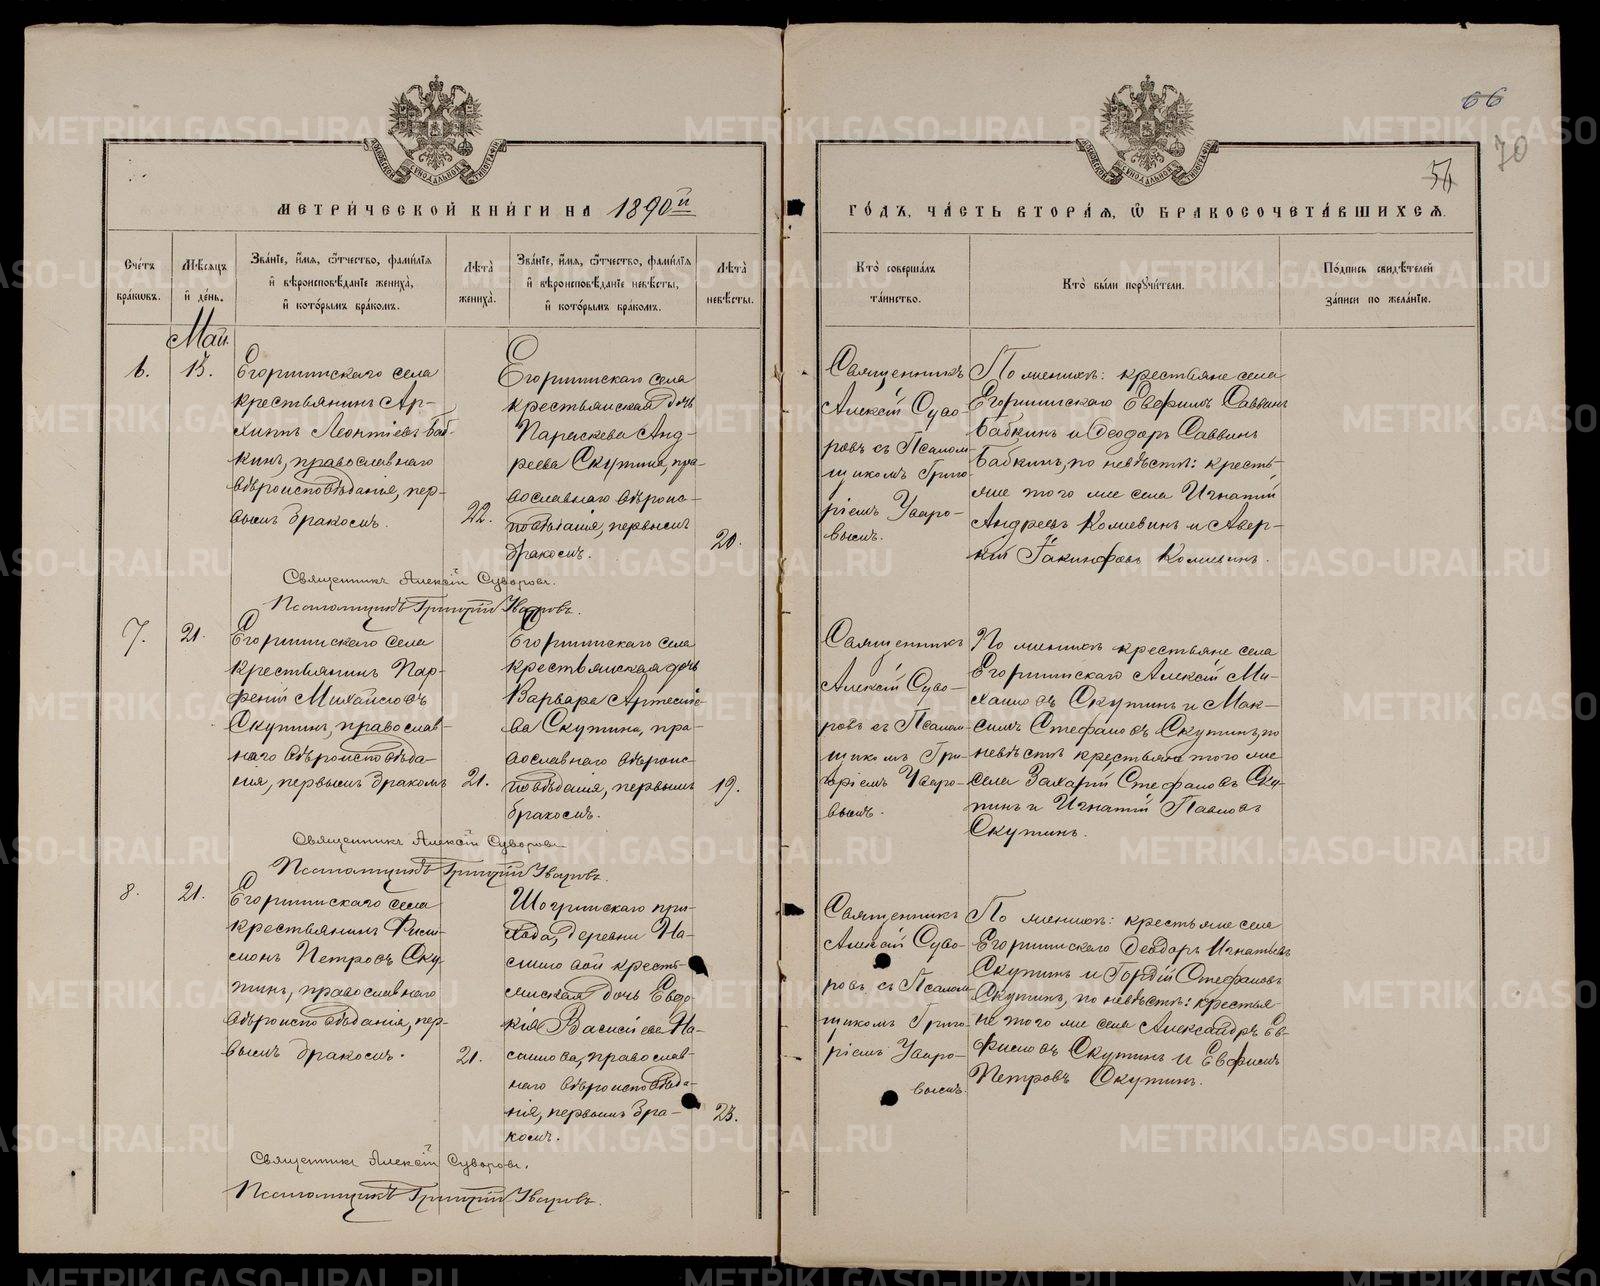 66
70
54
МЕТРИЧЕСКОЙ КНИГИ НА 1890й
ГОДЪ, ЧАСТЬ ВТОРАЯ, Ѡ БРАКОСОЧЕТАВШИХСЯ.
Счетъ браковъ.
Мѣсяцъ и день.
Званіе, имя, ѻтчество, фамилія и вѣроисповѣданіе жениха, и которымъ бракомъ.
Лѣта жениха.
Званіе, имя, ѻтчество, фамилія и вѣроисповѣданіе невѣсты, и которымъ бракомъ.
Лѣта невѣсты.
Кто совершалъ таинство.
Кто были поручители.
Подпись свидѣтелей записи по желанію.
Май
6.
13.
Егоршинскаго села
крестьянинъ Ар-
хиппъ Леонтіевъ Баб-
кинъ, православнаго
вѣроисповѣданія, пер-
вымъ бракомъ.
22.
Егоршинскаго села
крестьянская дочь
Параскева Анд-
реева Скутина, пра-
вославнаго вѣроис-
повѣданія, первымъ
бракомъ.
20.
Священникъ
Алексій Суво-
ровъ съ Псалом-
щикомъ Григо-
ріемъ Уваро-
вымъ.
По женихѣ: крестьяне села
Егоршинскаго Евфимъ Саввинъ
Бабкинъ и Ѳеодоръ Саввинъ
Бабкинъ, по невѣстѣ: кресть-
яне того же села Игнатій
Андреевъ Комевинъ и Авер-
кій Іакинфовъ
Священникъ Алексій Суворовъ.
Псаломщикъ Григорій Уваровъ.
7.
21.
Егоршинскаго села
крестьянинъ Пар-
феній Михайловъ
Скутинъ, православ-
наго вѣроисповѣда-
нія, первымъ бракомъ
21.
Егоршинскаго села
крестьянская дочь
Варвара Артеміе-
ва Скутина, пра-
вославнаго вѣроис-
повѣданія, первымъ
бракомъ.
19.
Священникъ
Алексій Суво-
ровъ съ Псалом-
щикомъ Гри-
горіемъ Уваро-
вымъ.
По женихѣ крестьяне села
Егоршинскаго Алексій Ми-
хайловъ Скутинъ и Мак-
симъ Стефановъ Скутинъ, по
невѣстѣ крестьяне того же
села Захарій Стефановъ Ску-
тинъ и Игнатій Павловъ
Скутинъ.
Священникъ Алексій Суворовъ
Псаломщикъ Григорій Уваровъ.
8.
21.
Егоршинскаго села
крестьянинъ Фили-
монъ Петровъ Ску-
тинъ, православнаго
вѣроисповѣданія, пер-
вымъ бракомъ.
21.
Шогринскаго при-
хода, деревни
кресть-
янская дочь Евдо-
кія Василіева
православ-
наго вѣроисповѣда-
нія, первымъ бра-
комъ.
23.
Священникъ
Алексій Суво-
ровъ съ Псалом-
щикомъ Григо-
ріемъ Уваро-
вымъ.
По женихѣ: крестьяне села
Егоршинскаго Ѳеодоръ Игнатьевъ
Скутинъ и Гордій Стефановъ
Скутинъ, по невѣстѣ: крестья-
не того же села Александръ Ев-
фимовъ Скутинъ и Евфимъ
Петровъ Скутинъ.
Священникъ Алексій Суворовъ.
Псаломщикъ Григорій Уваровъ.
METRIKI.GASO-URAL.RU